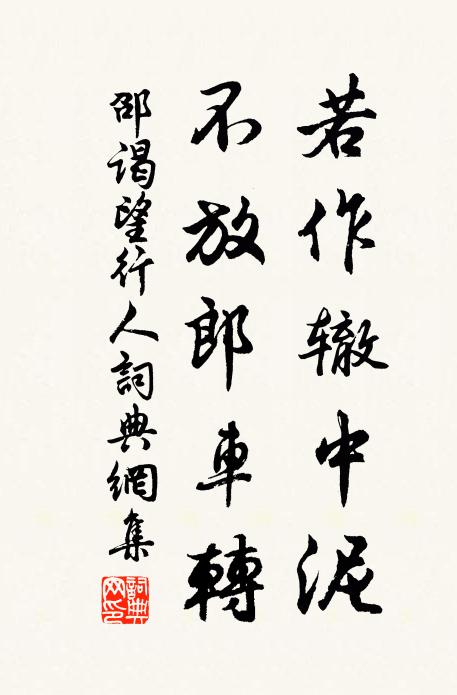 若作辙中泥
不放郎車轉
邵谒望行人詞典網集
詞典网印